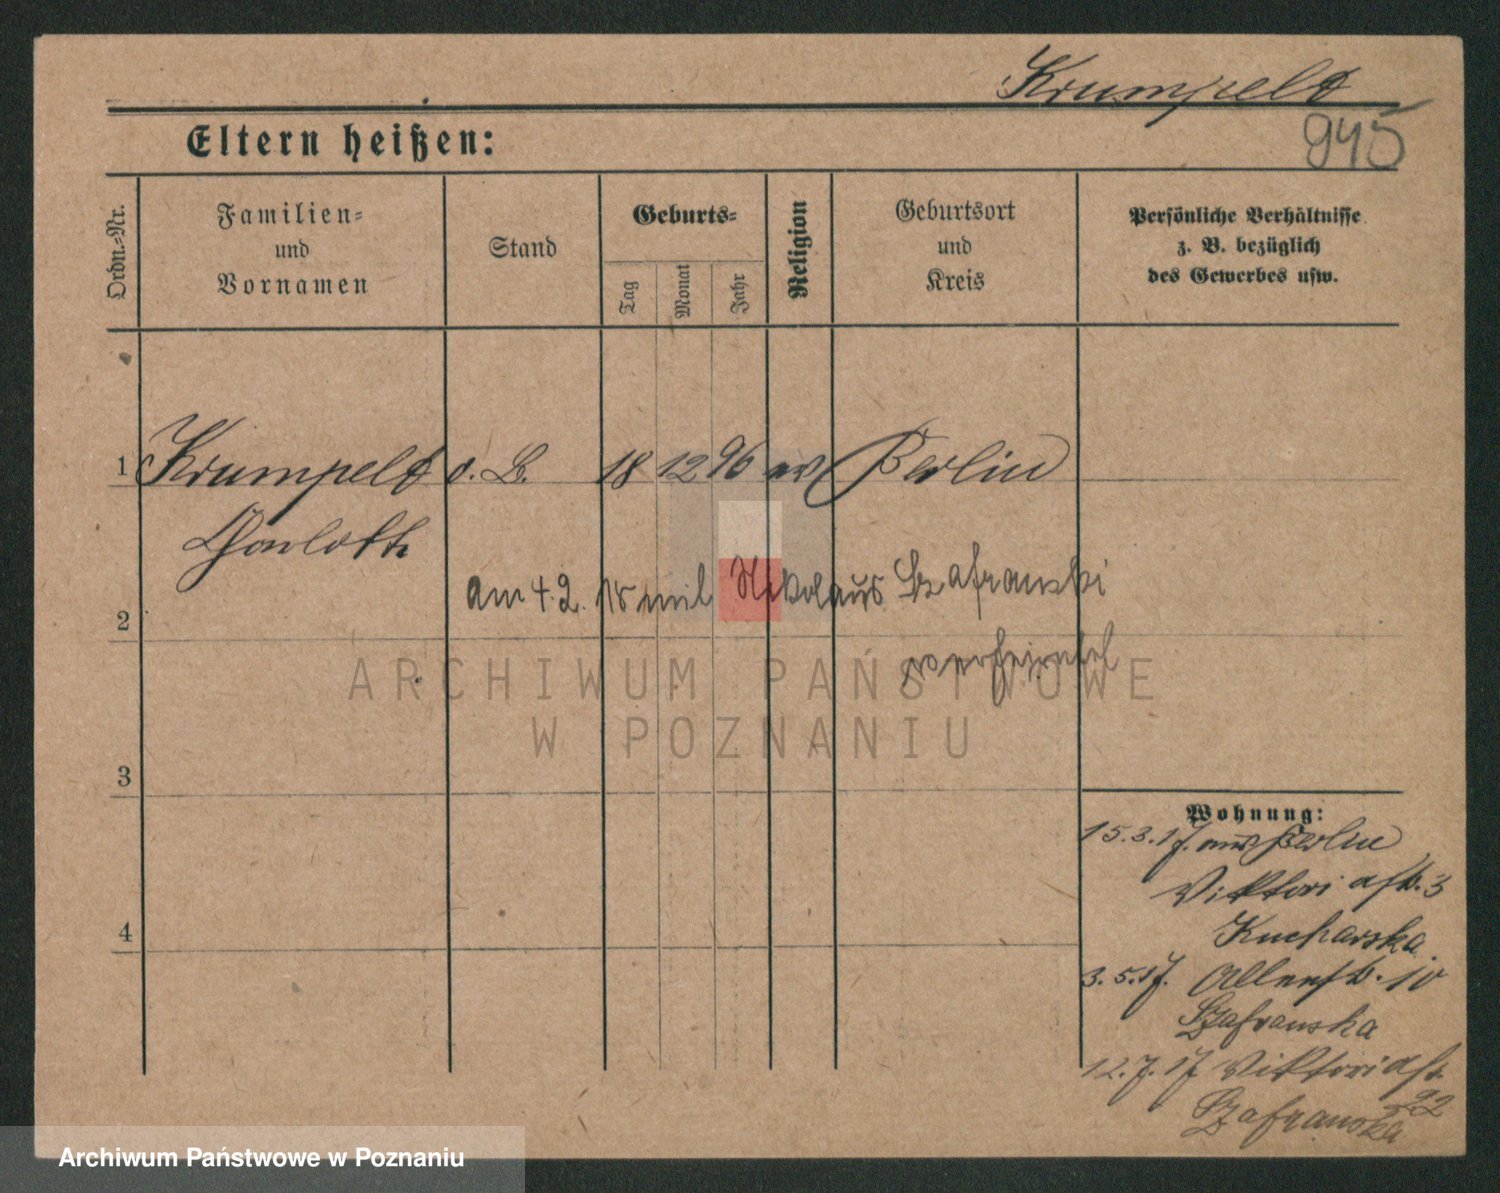 Krumpelt
945
Eltern heißen:
Ordn.-Nr.
Familien-
und
Vornamen
Stand
Geburts-
Tag
Monat
Jahr
Religion
Geburtsort
und
Kreis
Persönliche Verhältnisse
z. B. bezüglich
des Gewerbes usw.
1 Krumpelt o. B. 18 12 96 ev Berlin
Charlotte
am 4. 2. 18 mit Nikolaus Szafranski
2
verheiratet
ARCHIWUM PAŃSTWOWE
W POZNANIU
3
Wohnung:
15.3.17. aus Berlin
Viktoriastr. 3
Kucharska
4
3.5.17. 10
Szafranska
12.7.17 Viktoriastr.
22
Szafranska
Archiwum Państwowe w Poznaniu